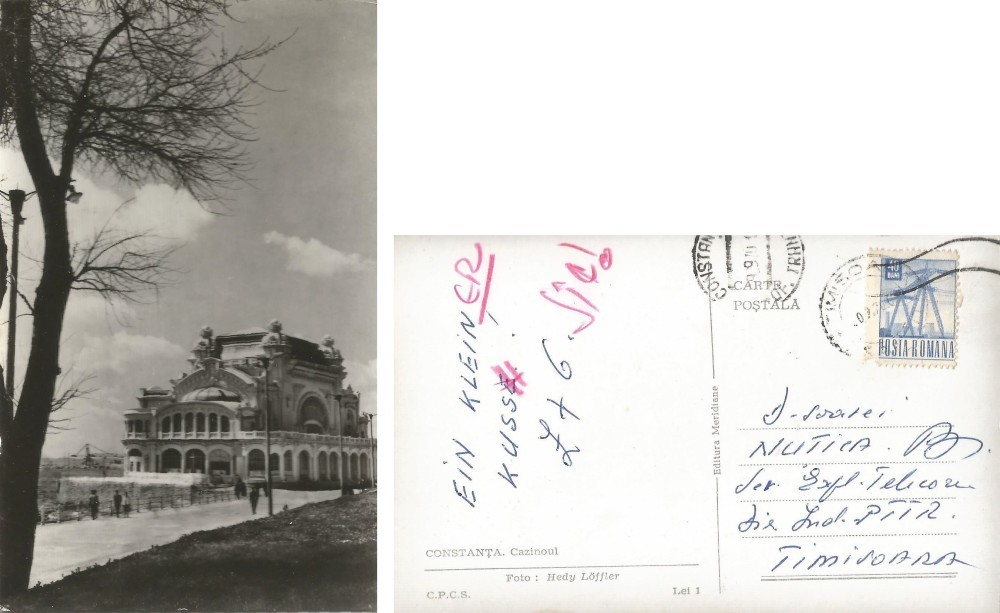 EIN KLEINER
KUSS!
L + G.
SÎC!
CONSTANȚA. Cazinoul
Foto : Hedy Löffler
C.P.C.S.
Lei 1
Editura Meridiane
CONSTAN
JUD.
CARTE
POȘTALĂ
40
BANI
POSTA ROMANA
D-șoarei
NUTICA B.
Ser. Expl. Telecom
Dir. Jud. PTTR.
TIMISOARA